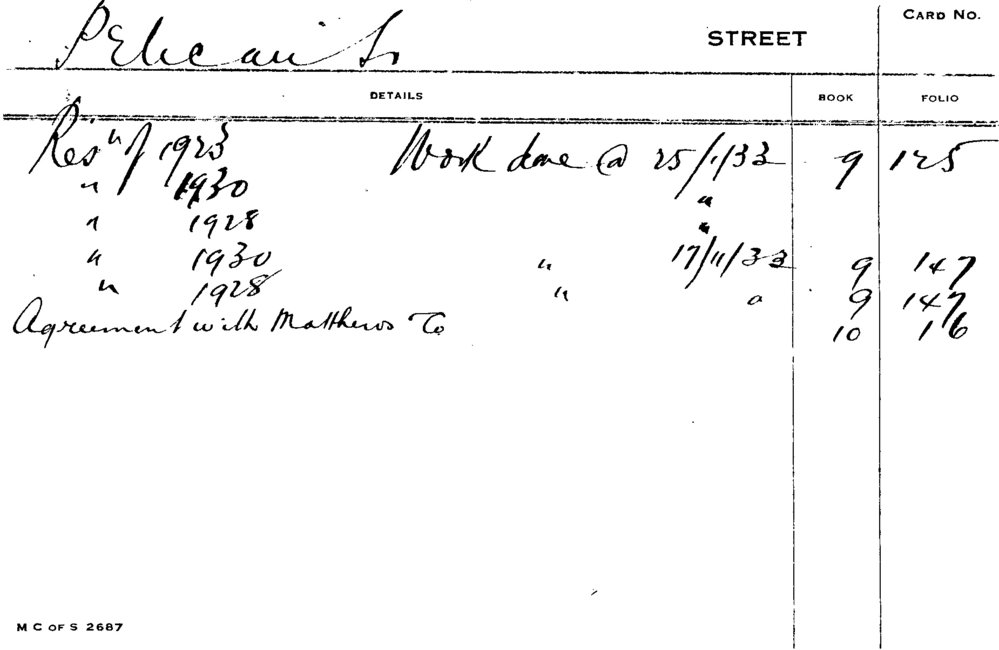 CARD NO.
Pelican St STREET
DETAILS BOOK FOLIO
Resⁿ of 1923 Work done @ 25/1/33 9 125
" 1930 "
" 1928 "
" 1930 " 17/11/33 9 147
" 1928 " " 9 147
Agreement with Matthews Co 10 16
M C OF S 2687